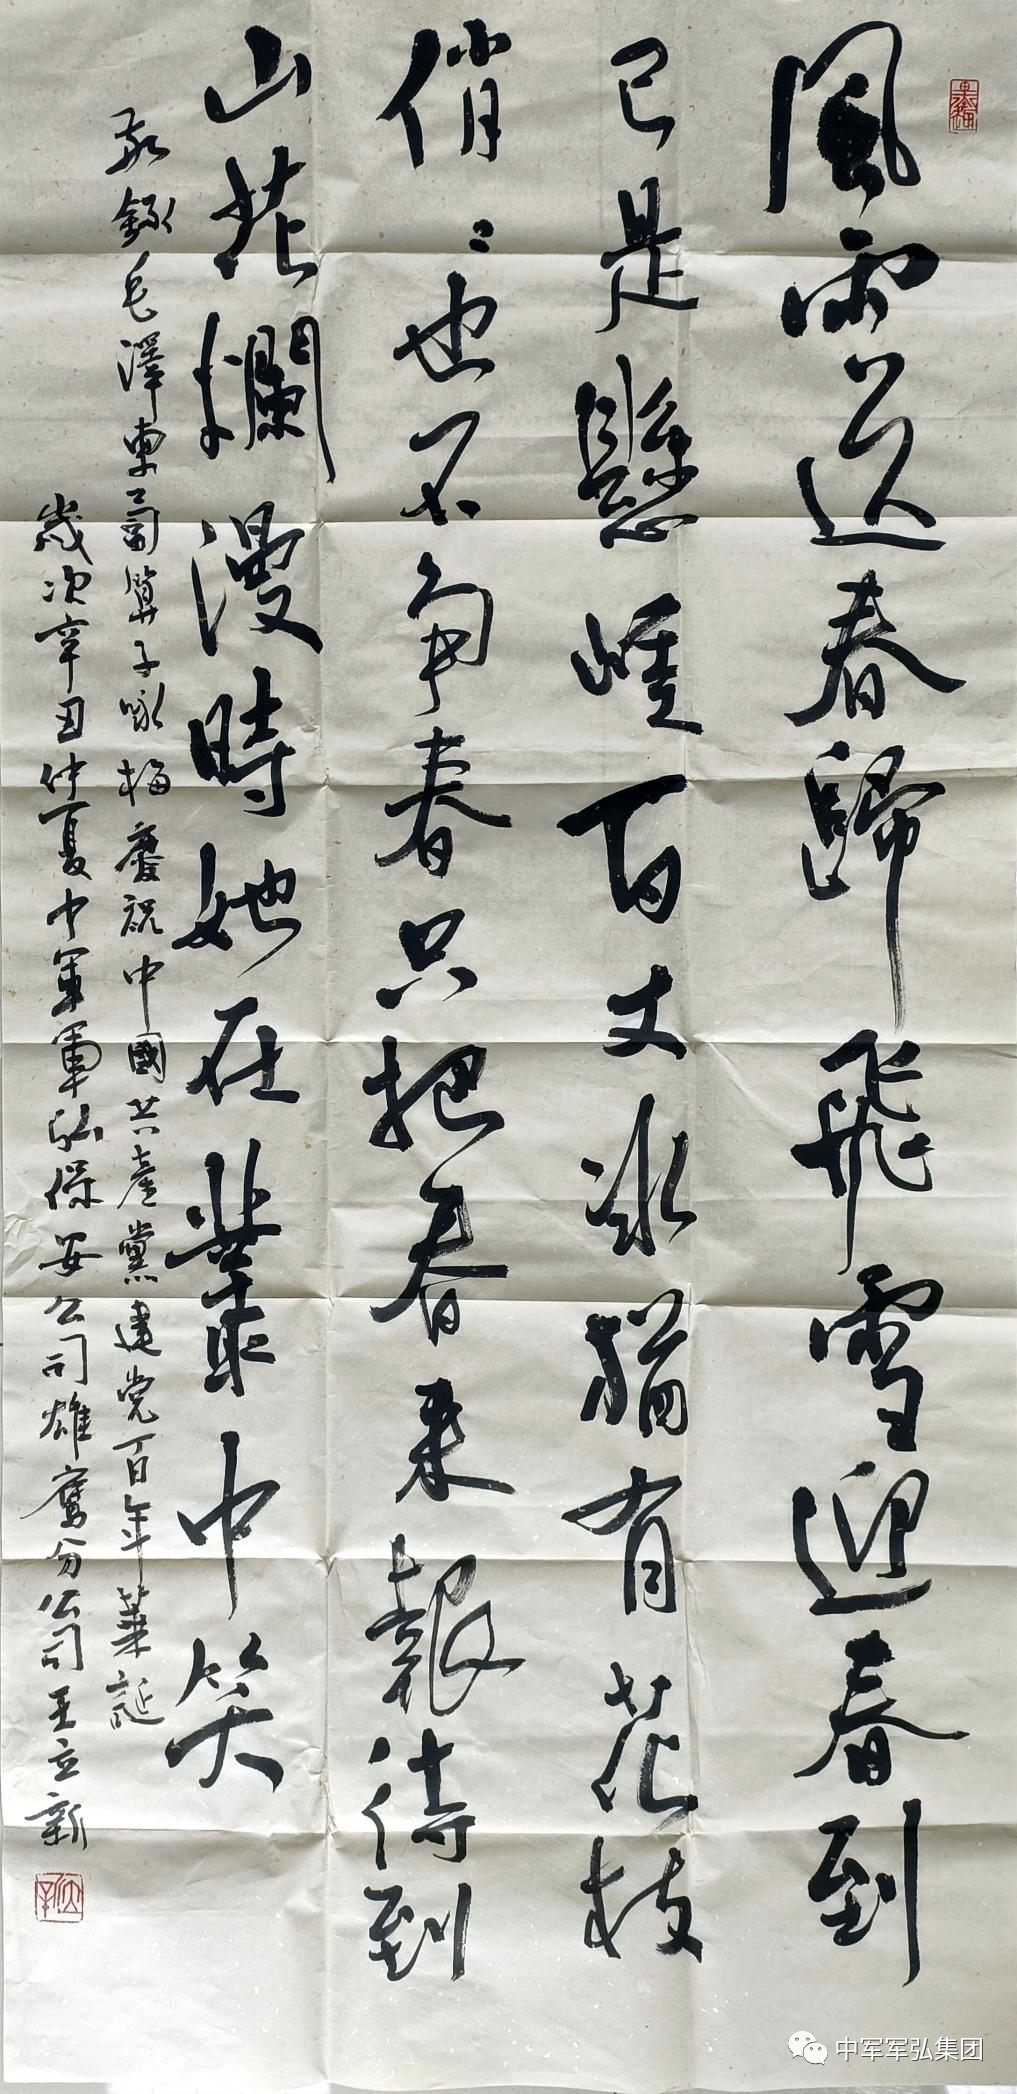 風雨送春歸飛雪迎春到
已是懸崖百丈冰猶有花枝
俏〻也不争春只把春来報待到
山花爛漫時她在叢中笑
敬録毛澤東蔔算子咏梅慶祝中國共產黨建党百年華誕
歲次辛丑仲夏中軍軍弘保安公司雄奮分公司王立新
中军军弘集团